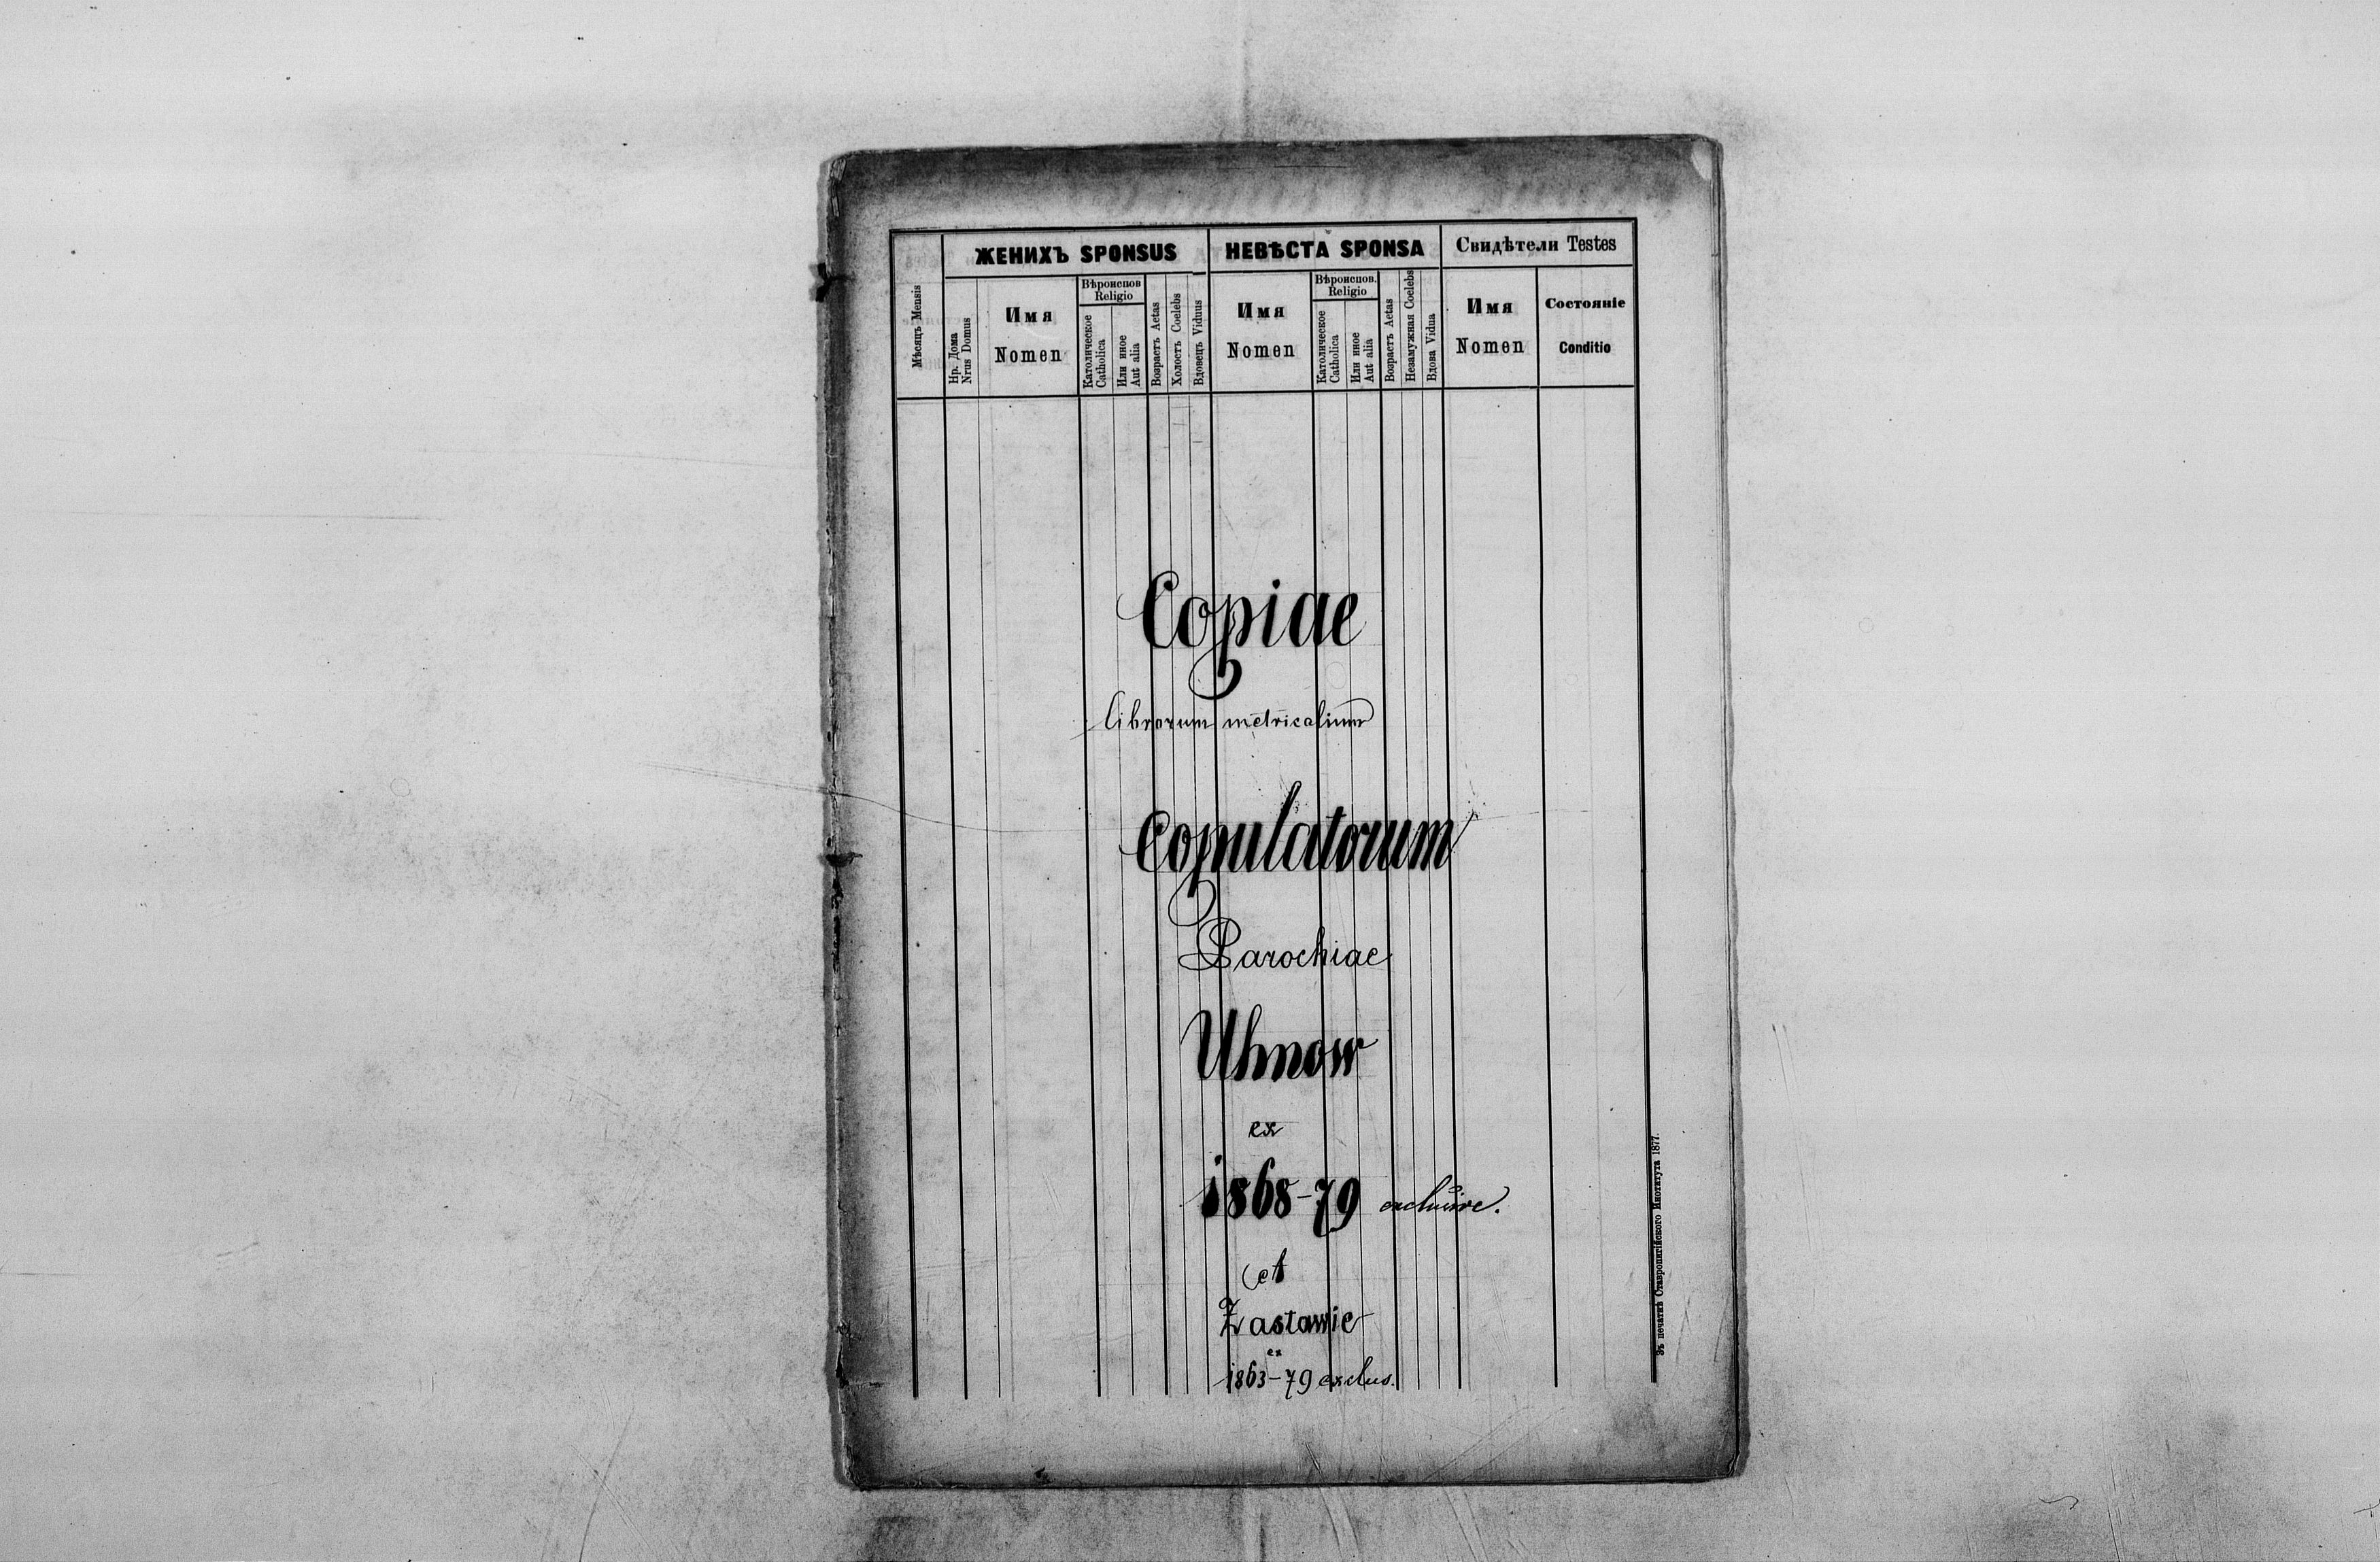 Мѣсяцъ Mensis
ЖЕНИХЪ SPONSUS
НЕВѢСТА SPONSA
Свидѣтели Testes
Нр. Дома
Nrus Domus
Имя
Nomen
Вѣроиспов
Religio
Католическое
Catholica
Или иное
Aut alia
Возрастъ Aetas
Холостъ Coelebs
Вдовецъ Viduus
Имя
Nomen
Вѣроиспов.
Religio
Католическое
Catholica
Или иное
Aut alia
Возрастъ Aetas
Незамужная Coelebs
Вдова Vidua
Имя
Nomen
Состояніе
Conditio
Copiae
librorum metricalium
Copulatorum
Parochiae
Uhnow
ex
1868-79 exclusive.
et
Zastawie
ex
1863-79 exclus.
Зъ печатнѣ Ставропигійского Института 1877.